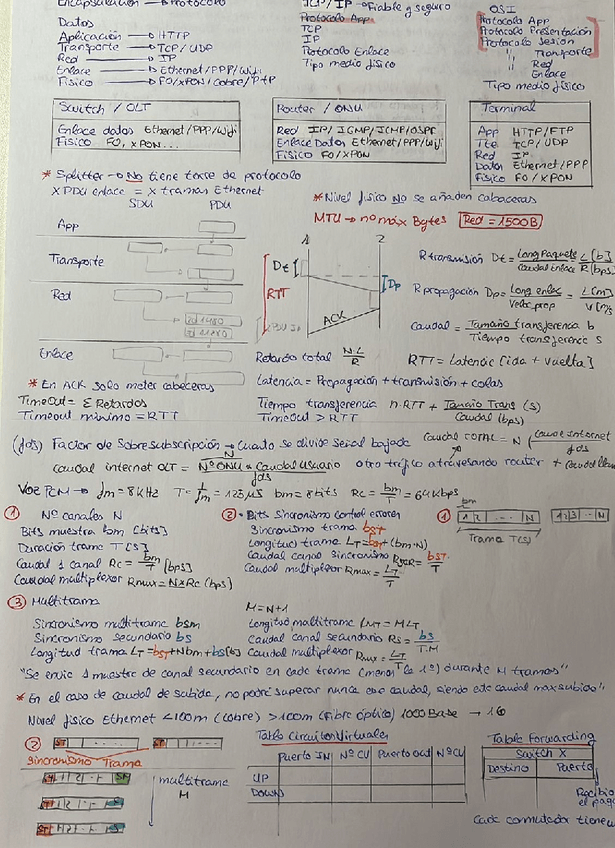 Encapsulación → Protocolo
TCP/IP → Fiable y seguro
OSI
Datos
Aplicación → HTTP
Transporte → TCP/UDP
Red → IP
Enlace → Ethernet/PPP/Wifi
Físico → FO/XPON/Cobre/PtP
Protocolo App
TCP
IP
Protocolo Enlace
Tipo medio físico
Protocolo App
Protocolo Presentación
Protocolo Sesión
" Transporte
" Red
Enlace
Tipo medio físico
Switch / OLT
Enlace datos Ethernet/PPP/Wifi
Físico FO, XPON...
Router / ONU
Red IP/IGMP/ICMP/OSPF
Enlace Datos Ethernet/PPP/Wifi
Físico FO/XPON
Terminal
App HTTP/FTP
Tte TCP/UDP
Red IP
Datos Ethernet/PPP
Físico FO/XPON
* Splitter → No tiene torre de protocolo
X PDU enlace = X tramas Ethernet
SDU PDU
* Nivel físico NO se añaden cabeceras
MTU → nº máx Bytes Red = 1500B
App
Transporte
Red
Enlace
1 2
Dt
RTT
Dp
ACK
R transmisión Dt = Long Paquete / Caudal enlace = L [b] / R [bps]
R propagación Dp = Long enlac / Veloc prop = L [m] / V [m/s
Caudal = Tamaño transferencia b / Tiempo transferencia s
Retardo total N·L / R
RTT = Latencia [ida + vuelta]
* En ACK solo meter cabeceras
Latencia = Propagación + transmisión + colas
Timeout = Σ Retardos
Timeout mínimo = RTT
Tiempo transferencia n·RTT + Tamaño Trans / Caudal (bps) (s)
Timeout > RTT
(fds) Factor de Sobresubscripción → Cuanto se divide señal bajada
caudal TOTAL = N (caudal internet / fds
caudal internet OLT = Nº ONU × Caudal usuario / fds
otro tráfico atravesando router
Voz PCM → fm = 8 KHz T = 1/fm = 125 μs bm = 8 bits Rc = bm/T = 64 Kbps
① Nº canales N
Bits muestra bm [bits]
Duración trama T [s]
Caudal 1 canal Rc = bm/T [bps]
Caudal multiplexor Rmux = N×Rc (bps)
② • Bits Sincronismo control errores
Sincronismo trama bst
Longitud trama LT = bst + (bm·N)
Caudal canal sincronismo = bst/T
Caudal multiplexor Rmux = LT/T
① bm
1 2 ... N
Trama T(s)
1 2 3 .. N
③ Multitrama
M = N+1
Sincronismo multitrama bsm
Sincronismo secundario bs
Longitud trama LT = bst + Nbm + bs [b]
Longitud multitrama LMT = M LT
Caudal canal secundario Rs = bs / T.M
Caudal multiplexor Rmux = LT / T
"Se envía 1 muestra de canal secundario en cada trama (menos la 1º) durante M tramas"
* En el caso de caudal de subida, no podrá superar nunca ese caudal, siendo este caudal max subida"
Nivel físico Ethernet <100m (cobre) >100m (Fibra óptica) 1000Base → 1G
② ST ST
Sincronismo Trama
multitrama
M
Tabla Circuitos Virtuales
Puerto IN Nº CV Puerto Out Nº CV
UP
DOWN
Tabla Forwarding
Switch X
Destino Puerto
Recibio
el paq
Cada conmutador tiene